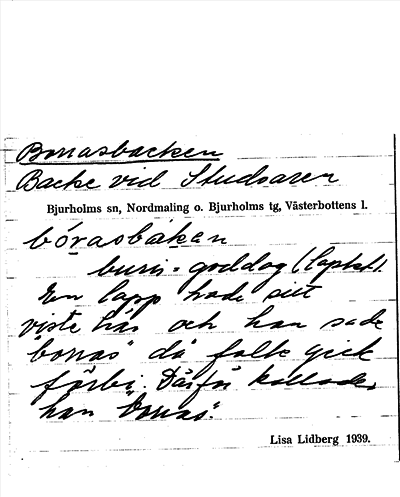 Borrasbacken
Backe vid Studsaren
Bjurholms sn, Nordmaling o. Bjurholms tg, Västerbottens l.
bórasbakan
buris = goddag (lapskt).
En lapp hade sitt
viste här och han sade
"borras" då folk gick
förbi. Därför kallades
han "Borras".
Lisa Lidberg 1939.